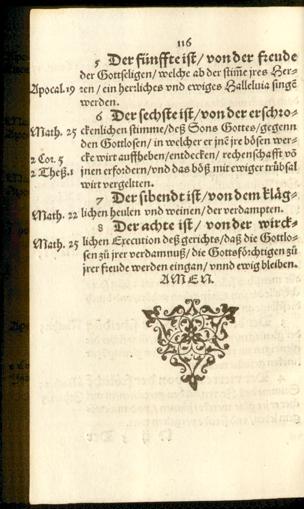 116
5 Der fünffte ist/ von der freude
der Gottseligen/ welche ab der stim̃e jres Her-
Apocal. 19 tzen/ ein herrliches vnd ewiges Halleluia singẽ
werden.
6 Der sechste ist/ von der erschro-
Math. 25 ckenlichen stimme/ deß Sons Gottes/ gegenn
den Gottlosen/ in welcher er jnẽ jre bösen wer-
2 Cor. 5 cke wirt auffheben/ entdecken/ rechenschafft võ
2 Theß. 1 jnen erfordern/ vnd das böß mit ewiger trübsal
wirt vergeltten.
7 Der sibendt ist/ von dem kläg-
Math. 22 lichen heulen vnd weinen/ der verdampten.
8 Der achte ist/ von der wirck-
Math. 25 lichen Execution deß gerichts/ daß die Gottlo-
sen zů jrer verdamnuß/ die Gottsförchtigen zů
jrer freude werden eingan/ vnnd ewig bleiben.
AMEN.